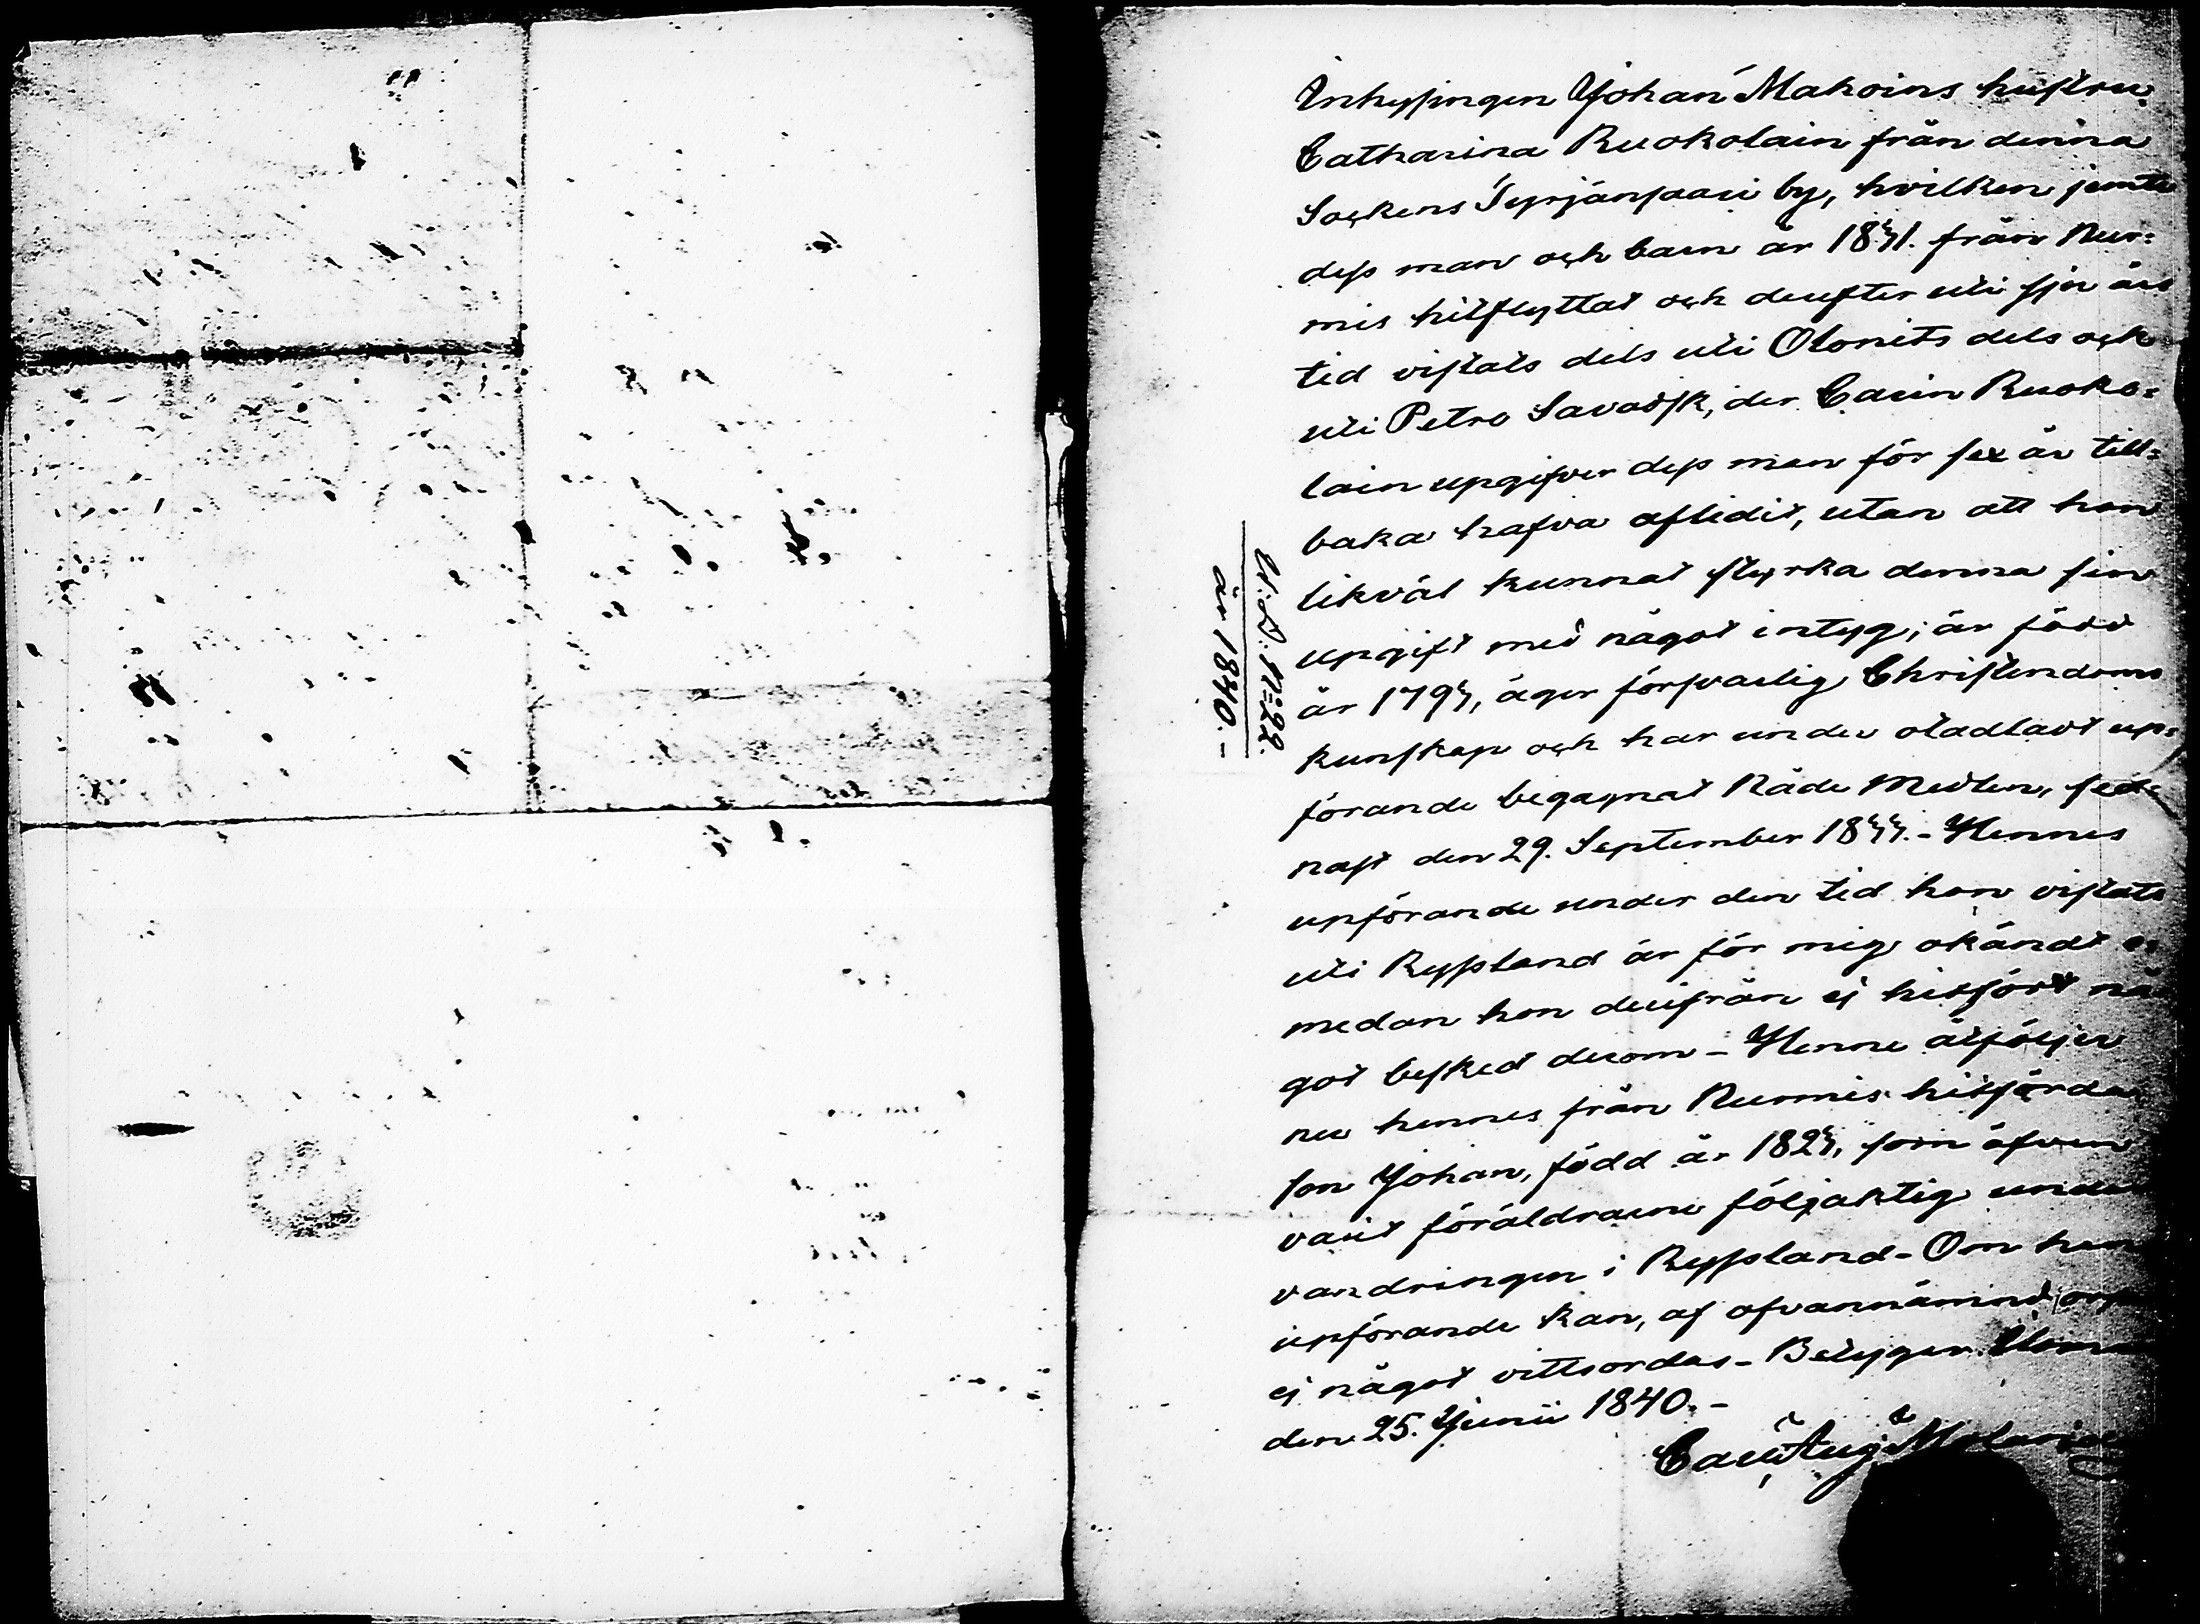 Inhyssingen Johan Makoins hustru
Catharina Ruokolain från denna
Sockens Syrjänsaari by, hvilken jemte
dess man och barn år 1831. från Nur=
mis hitflyttat och derefter uti sju års
tid vistats dels uti Olonits dels och
uti Petro Savodsk, der Carin Ruoko=
lain uppgifver dess man för sex år till=
baka hafva aflidit, utan att hon
likväl kunnat styrka denna sin
uppgift med något intyg; är född
år 1793, äger försvarlig Christendoms
kunskap och har under otadladt up=
förande begagnat Nåde Medlen, sed
nast den 29. September 1833. - Hennes
upförande under den tid hon vistats
uti Ryssland är för mig okändt e
medan hon derifrån ej hitfört nå
got besked derom - Henne åtföljer
nu hennes från Nurmis hitförda
son Johan, född år 1823, som äfven
varit föräldrarne följaktig under
vandringen i Ryssland - Om han
upförande kan, af ofvannämnd or
ej något vittsordas - Betygar
den 25. Junii 1840. -
Carl Aug
U. D. N=22.
år 1840. -